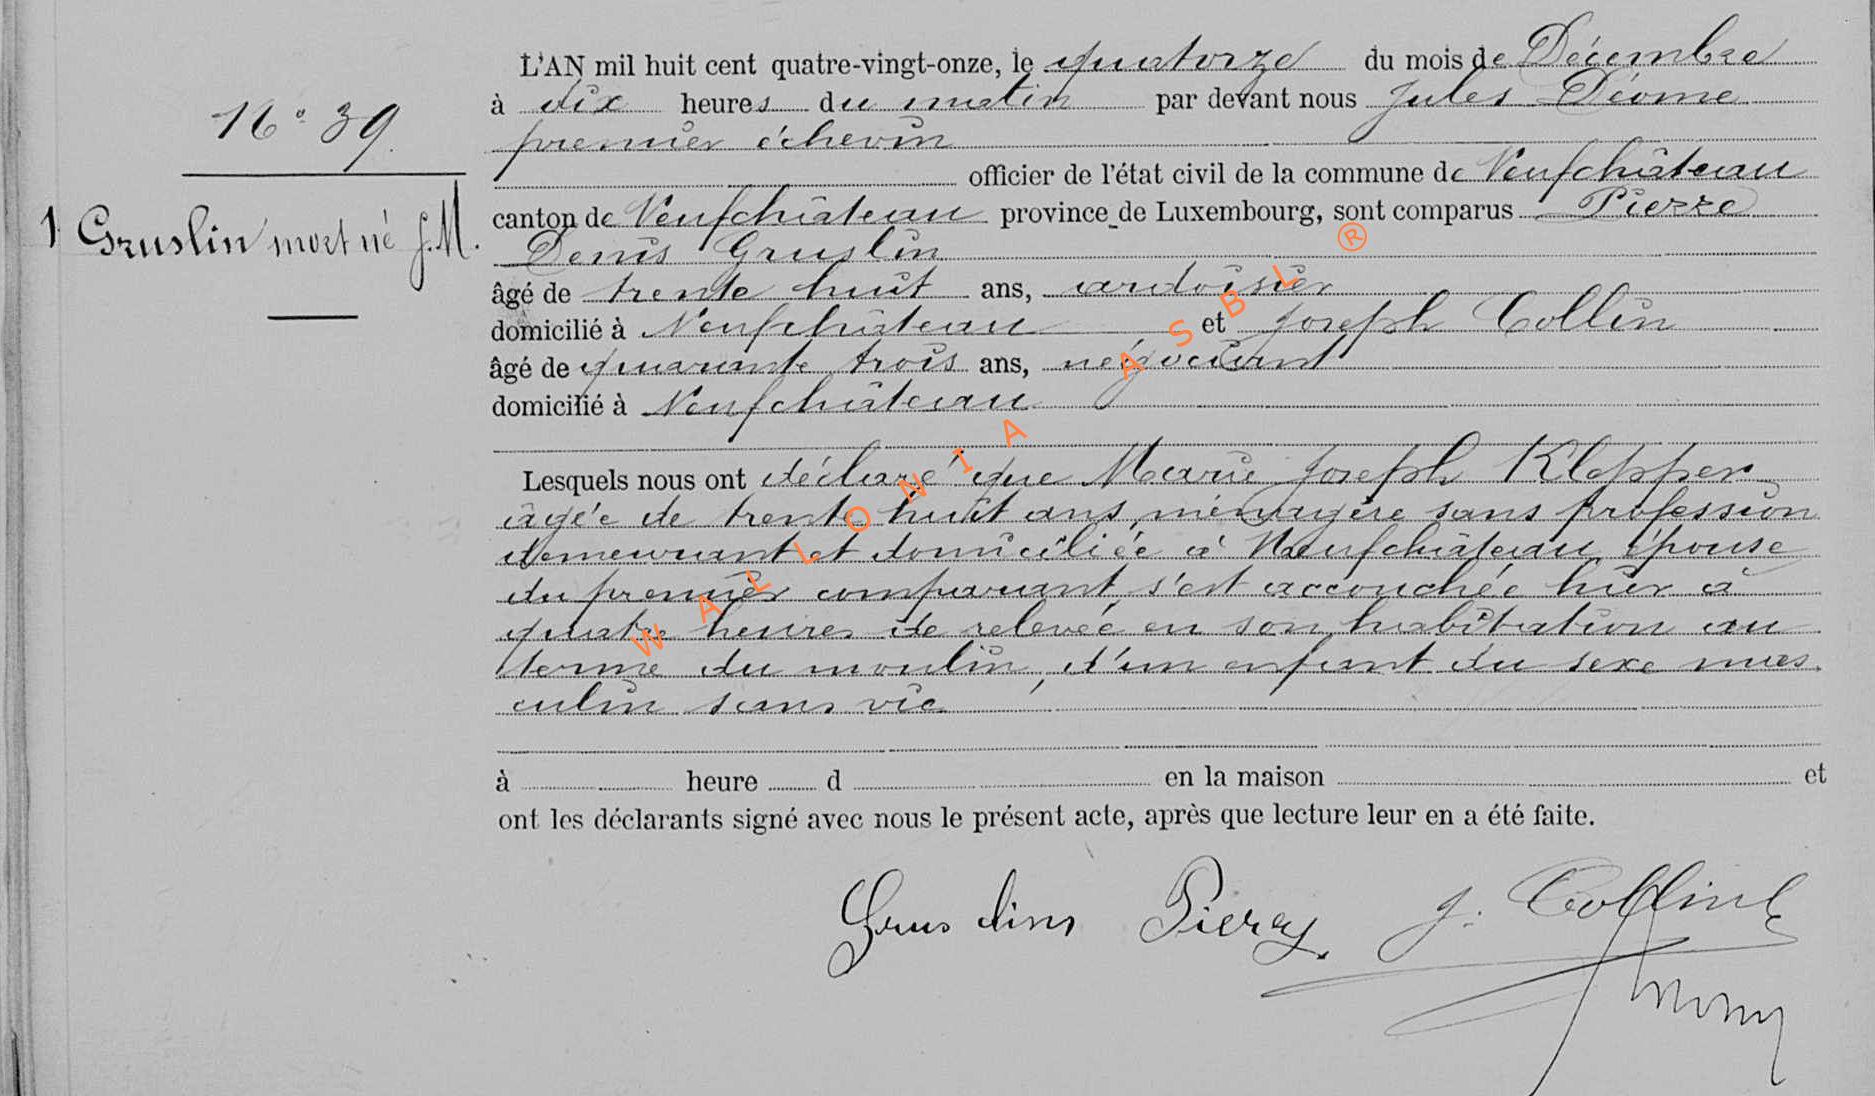 N° 39.
1 Gruslin mort né J.M.
L'AN mil huit cent quatre-vingt-onze, le quatorze du mois de Décembre
à dix heures du matin par devant nous Jules Déome
premier échevin
officier de l'état civil de la commune de Neufchâteau
canton de Neufchâteau province de Luxembourg, sont comparus Pierre
Denis Gruslin
âgé de trente huit ans, ardoisier
domicilié à Neufchâteau et Joseph Collin
âgé de quarante trois ans, négociant
domicilié à Neufchâteau
Lesquels nous ont déclaré que Marie Joseph Klepper
âgée de trente huit ans, ménagère sans profession
demeurant et domiciliée à Neufchâteau, épouse
du premier comparant, s'est accouchée hier à
quatre heures de relevée en son habitation au
terme du moulin, d'un enfant du sexe mas
culin sans vie
à heure d en la maison et
ont les déclarants signé avec nous le présent acte, après que lecture leur en a été faite.
Pierre J. Collin
WALLONIA ASBL ®